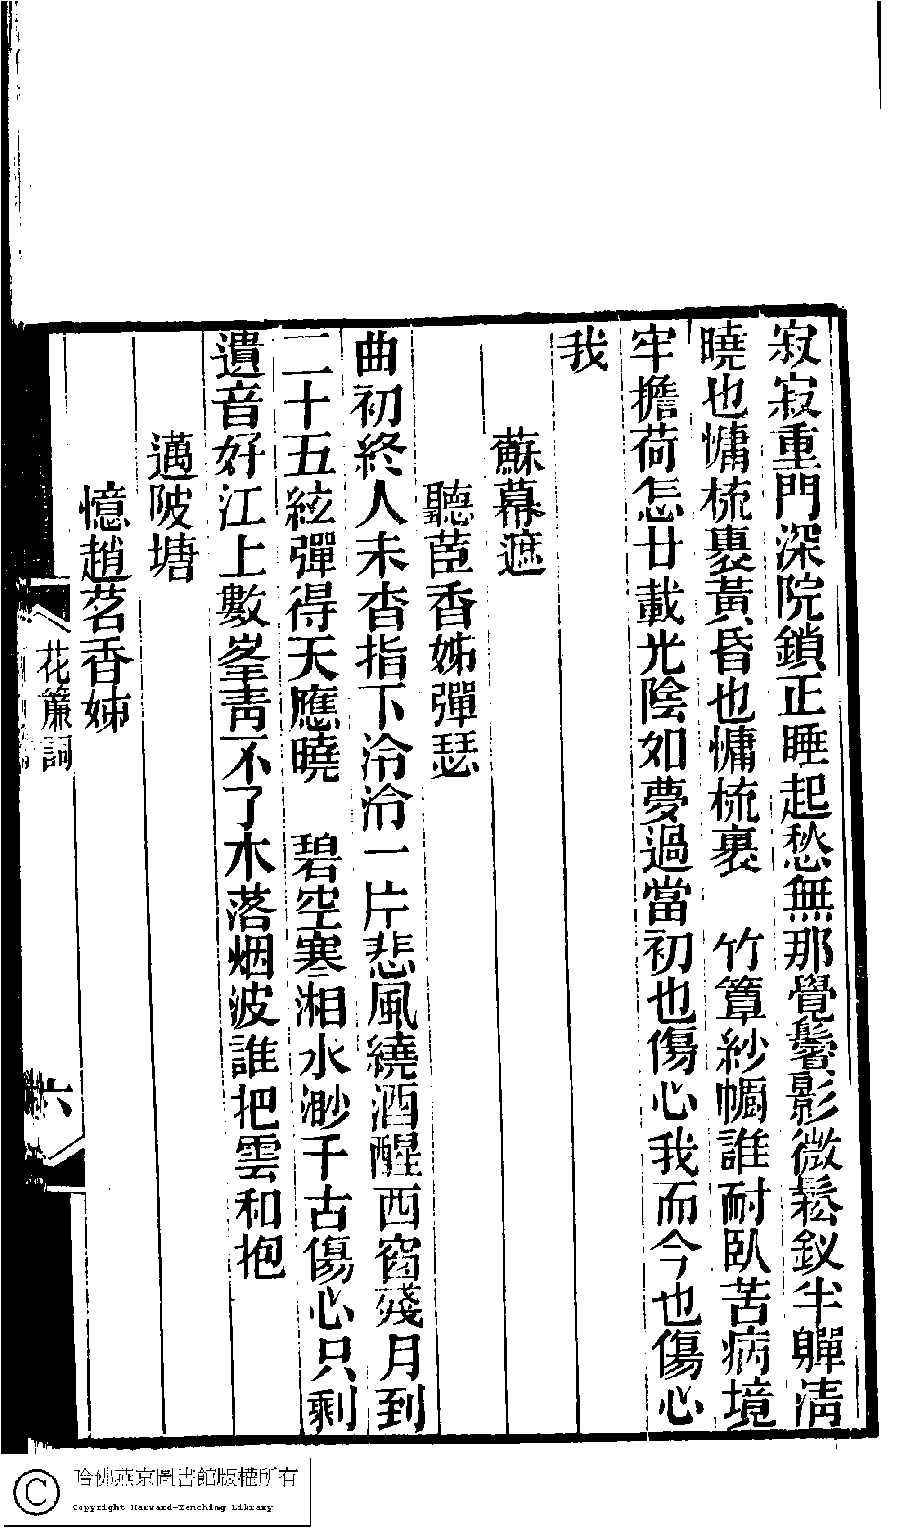 寂寂重門深院鎖正睡起愁無那覺鬢影微鬆釵半嚲淸
曉也慵梳裹黃昏也慵梳裹　竹簟紗幮誰耐臥苦病境
牢擔荷怎廿載光陰如夢過當初也傷心我而今也傷心
我
蘇幕遮
聽茝香姊彈瑟
曲初終人未杳指下泠泠一片悲風繞酒醒西窗殘月到
二十五絃彈得天應曉　碧空寒湘水渺千古傷心只剩
遺音好江上數峯靑不了木落烟波誰把雲和抱
邁陂塘
憶趙茗香姊
花簾詞
六
哈佛燕京圖書館版權所有
Copyright Harvard-Yenching Library